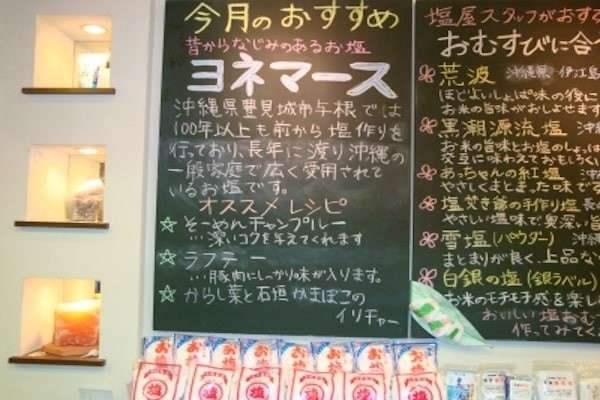 今月のおすすめ
昔からなじみのあるお塩
ヨネマース
沖縄県豊見城市与根では
100年以上も前から塩作りを
行っており、長年に渡り沖縄の
一般家庭で広く愛用されて
いるお塩です。
オススメレシピ
☆そーめんチャンプルー
…深いコクを与えてくれます
☆ラフテー
…豚肉にしっかり味が入ります。
☆からし菜と石垣かまぼこの
イリチャー
塩屋スタッフがおす
おむすびに合
荒波 沖縄県 伊江島
ほどよいしょっぱ味の後に
お米の旨味がおしよせます
黒潮源流塩 沖
お米の旨味とお塩のしょっぱ
交互に味わえておもしろい
あっちゃんの紅塩 沖
やさしくまとまった味でる
塩焚き爺の手作り塩 長
やさしい塩味で奥深い旨
雪塩(パウダー) 沖縄
まとまりが良く、上品な
白銀の塩(銀ラベル)
お米のモチモチ感を楽し
おいしい塩おむ
作ってみてく
お塩
塩
塩
塩
塩
塩
塩